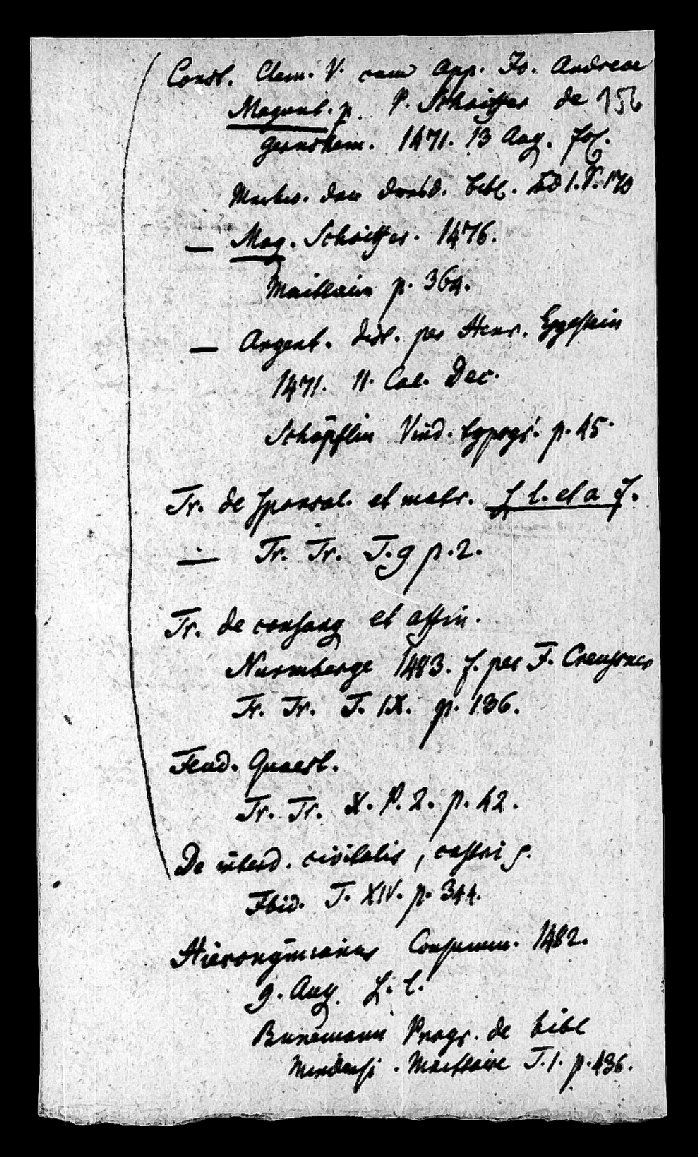 Const. Clem. V. cum App. Jo. Andreae
Mogunt. p. P. Schoiffer de 156
gernshem. 1471. 13 Aug. fol.
Merkw. der Dresd. Bibl. BD I. P. 170
— Mog. Schoiffer. 1476.
Maittaire p. 364.
— Argent. Dist. per Henr. Eggestein
1471. 11. Cal. Dec.
Schöpflin Vind. typogr. p. 45.
Tr. de sponsal. et matr. s. l. et a. f.
— Tr. Tr. T. 9 p. 2.
Tr. de consang et affin.
Nurmberge 1483. f. per F. Creusner
Tr. Tr. T. IX. p. 136.
Feud. Quaest.
Tr. Tr. X. P. 2. p. 42.
De interd. civitatis, castri
Ibid. T. XIV. p. 344.
Hieronymianus Consumm. 1482.
9. Aug. s. l.
Bunemann Progr. de bibl
Mindensi. Maittaire T. 1. p. 436.